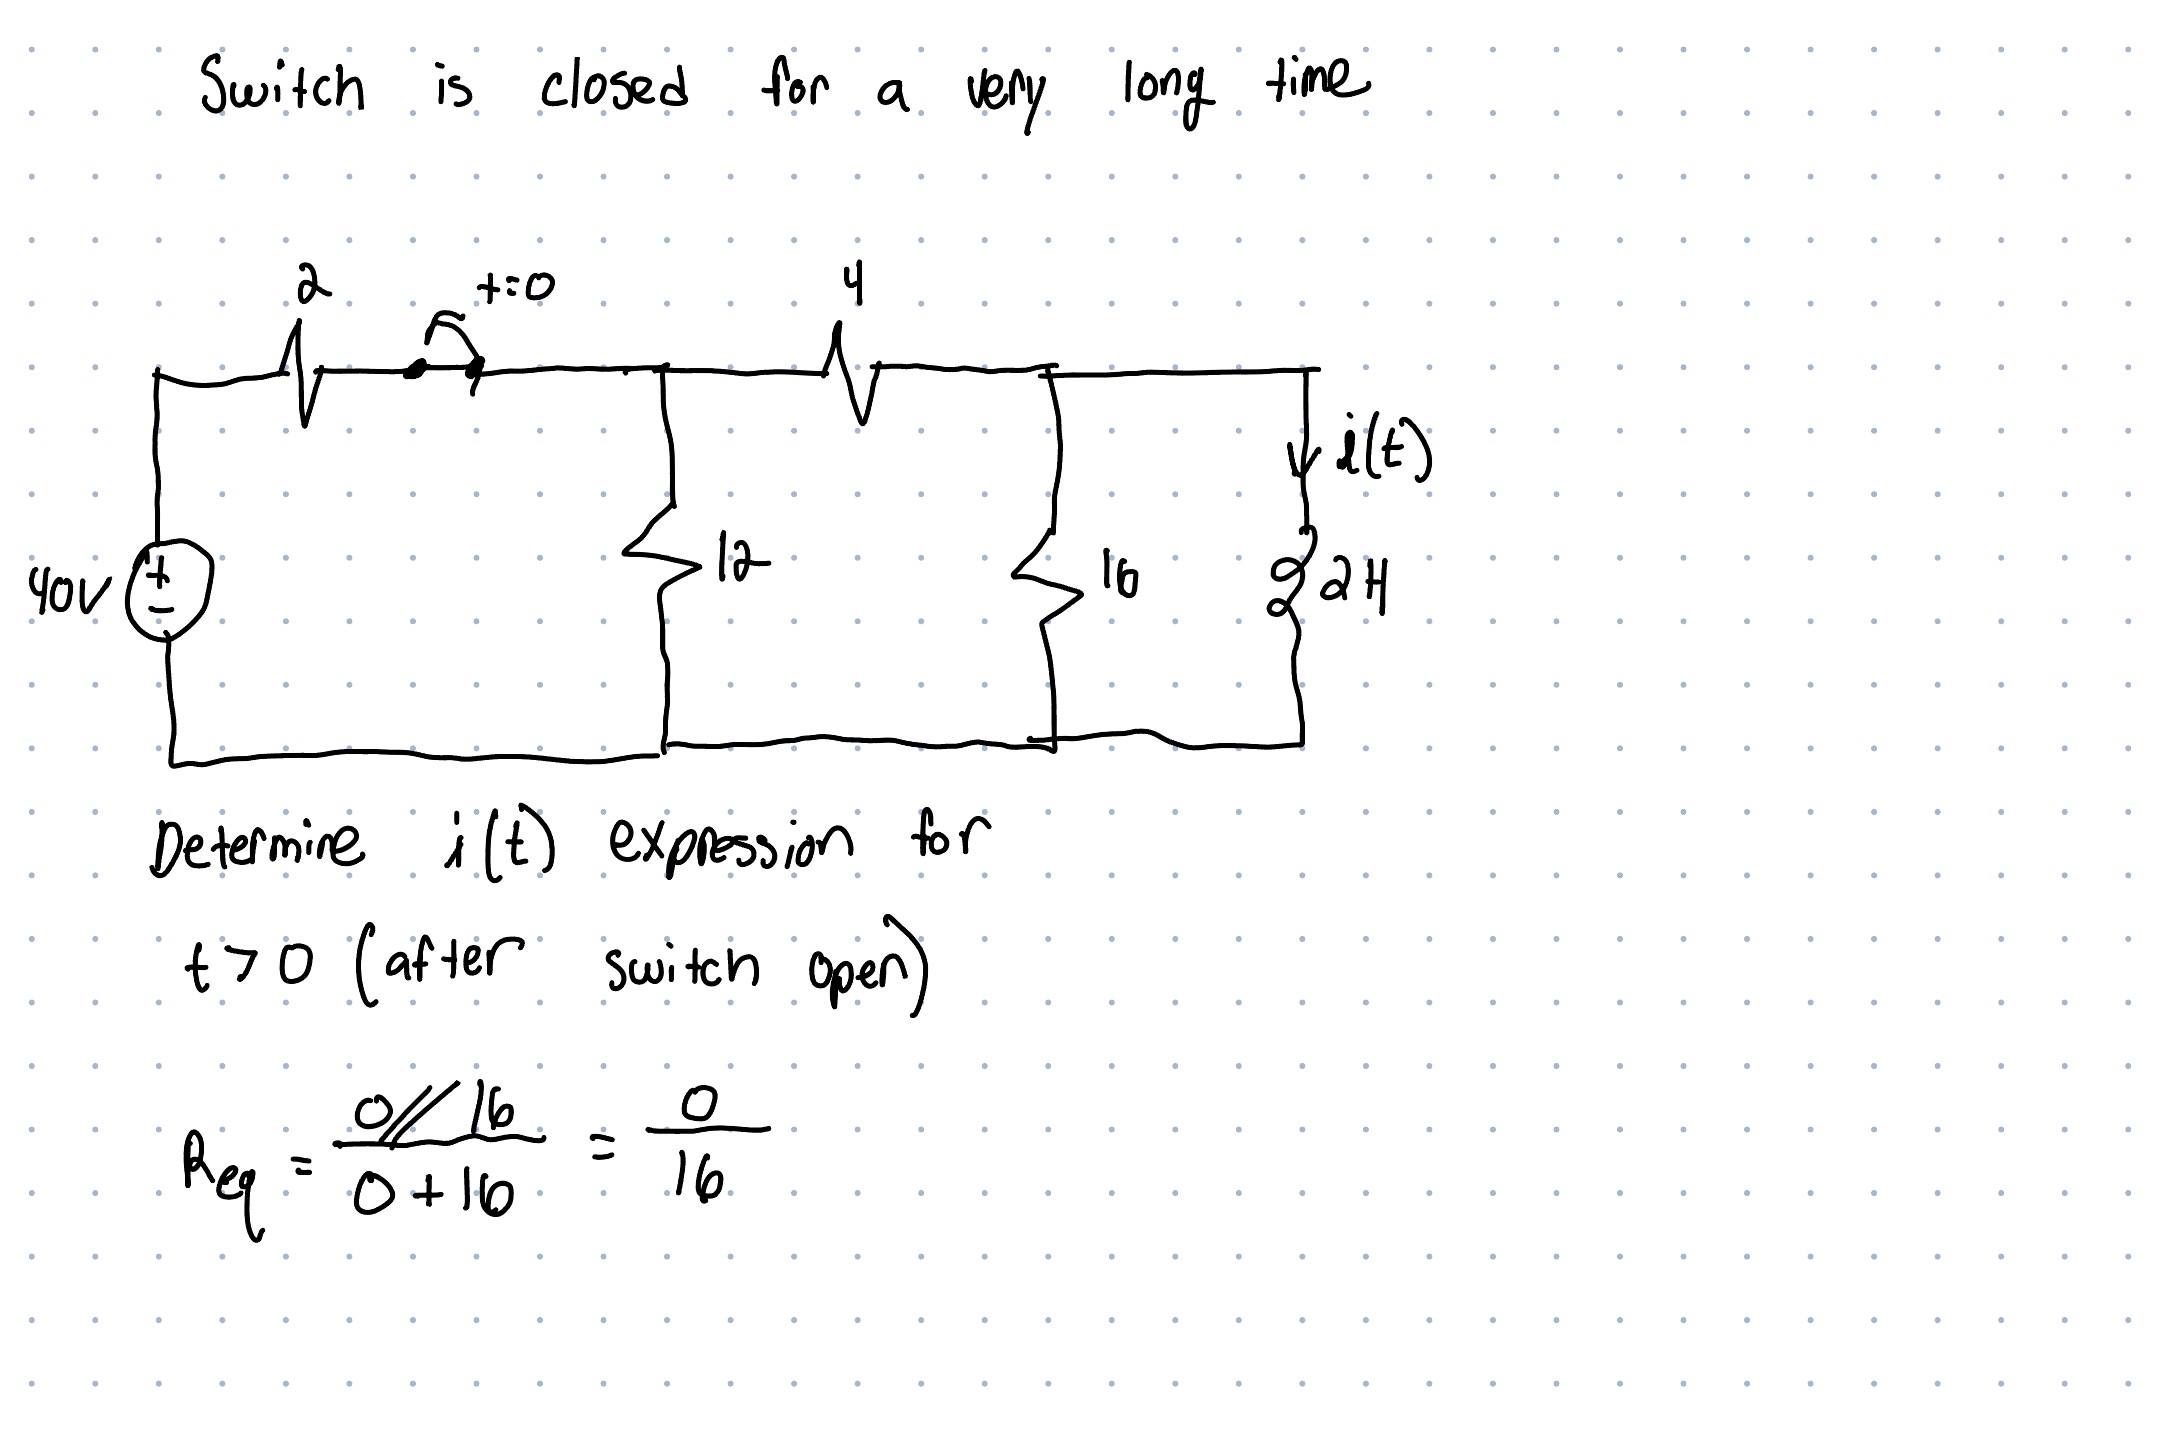 Switch is closed for a very long time
2
t=0
4
i(t)
40V
+
-
12
16
2H
Determine i(t) expression for
t > 0 (after switch open)
Req = 0//16 / 0+16 = 0/16